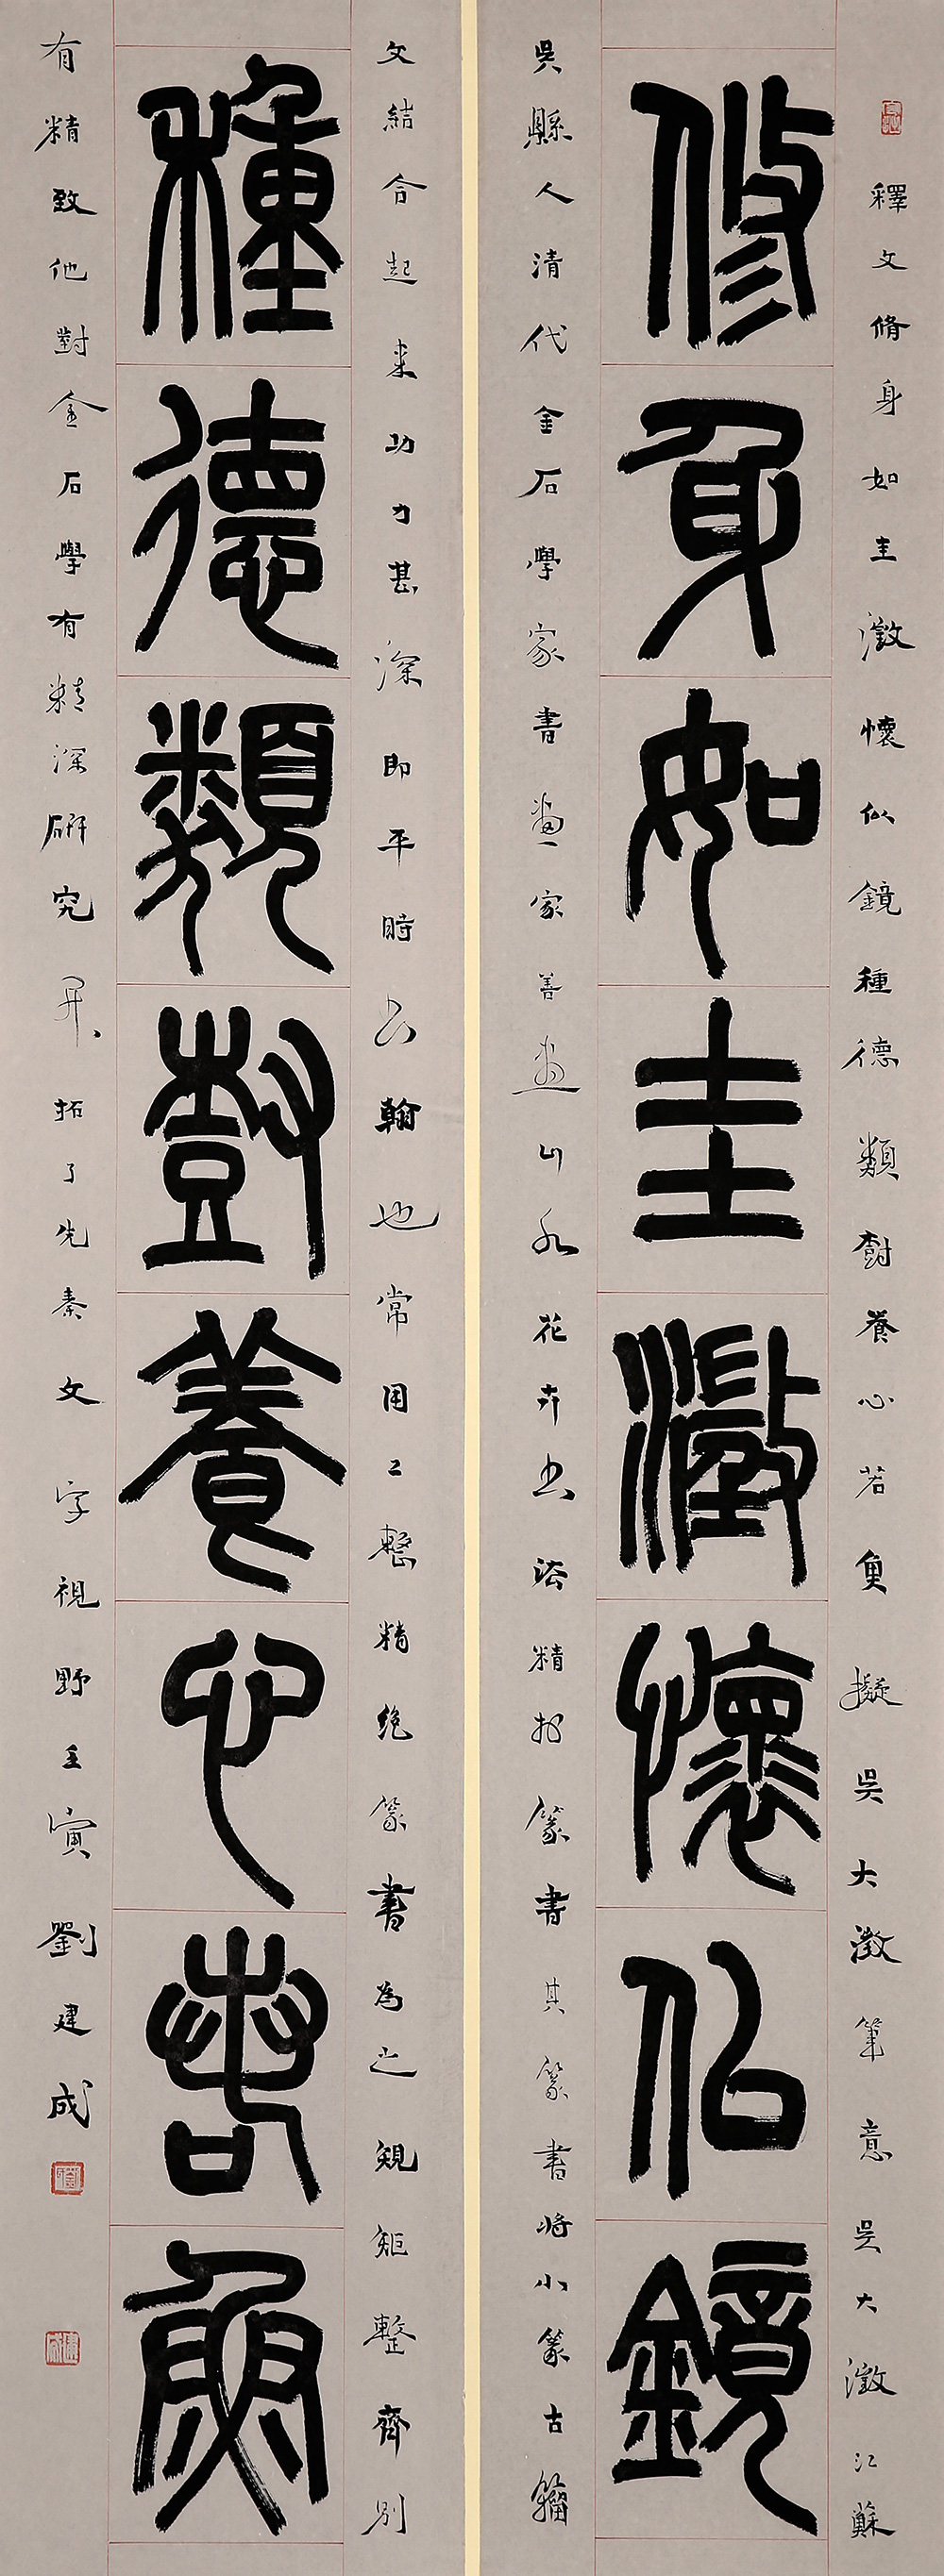 釋文脩身如圭澂懷似鏡種德類尌養心若魚擬吳大澂筆意吳大澂江蘇
修身如圭澂懷似鏡
吳縣人清代金石學家書畫家善畫山水花卉書法精於篆書其篆書將小篆古籀
文結合起來功力甚深即平時公翰也常用工整精絕篆書為之規矩整齊別
種德類尌養心若魚
有精致他對金石學有精深研究开拓了先秦文字視野壬寅劉建成